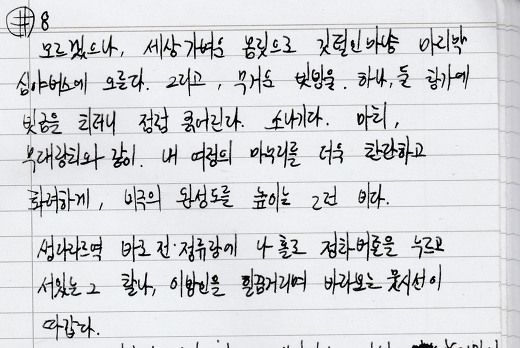 #8
모르겠으나, 세상 가벼운 몸짓으로 깃털인 마냥 마지막
심야버스에 오른다. 그리고, 무거운 빗방울. 하나, 둘 창가에
빗금을 치더니 점점 굵어진다. 소나기다. 마치,
무대장치와 같이. 내 여정의 마무리를 더욱 찬란하고
화려하게, 비극의 완성도를 높이는 그런 비다.
바로 전 정류장에 나 홀로 정차버튼을 누르고
서있는 그 찰나, 이방인을 힐끔거리며 바라보는 뭇시선이
따갑다.